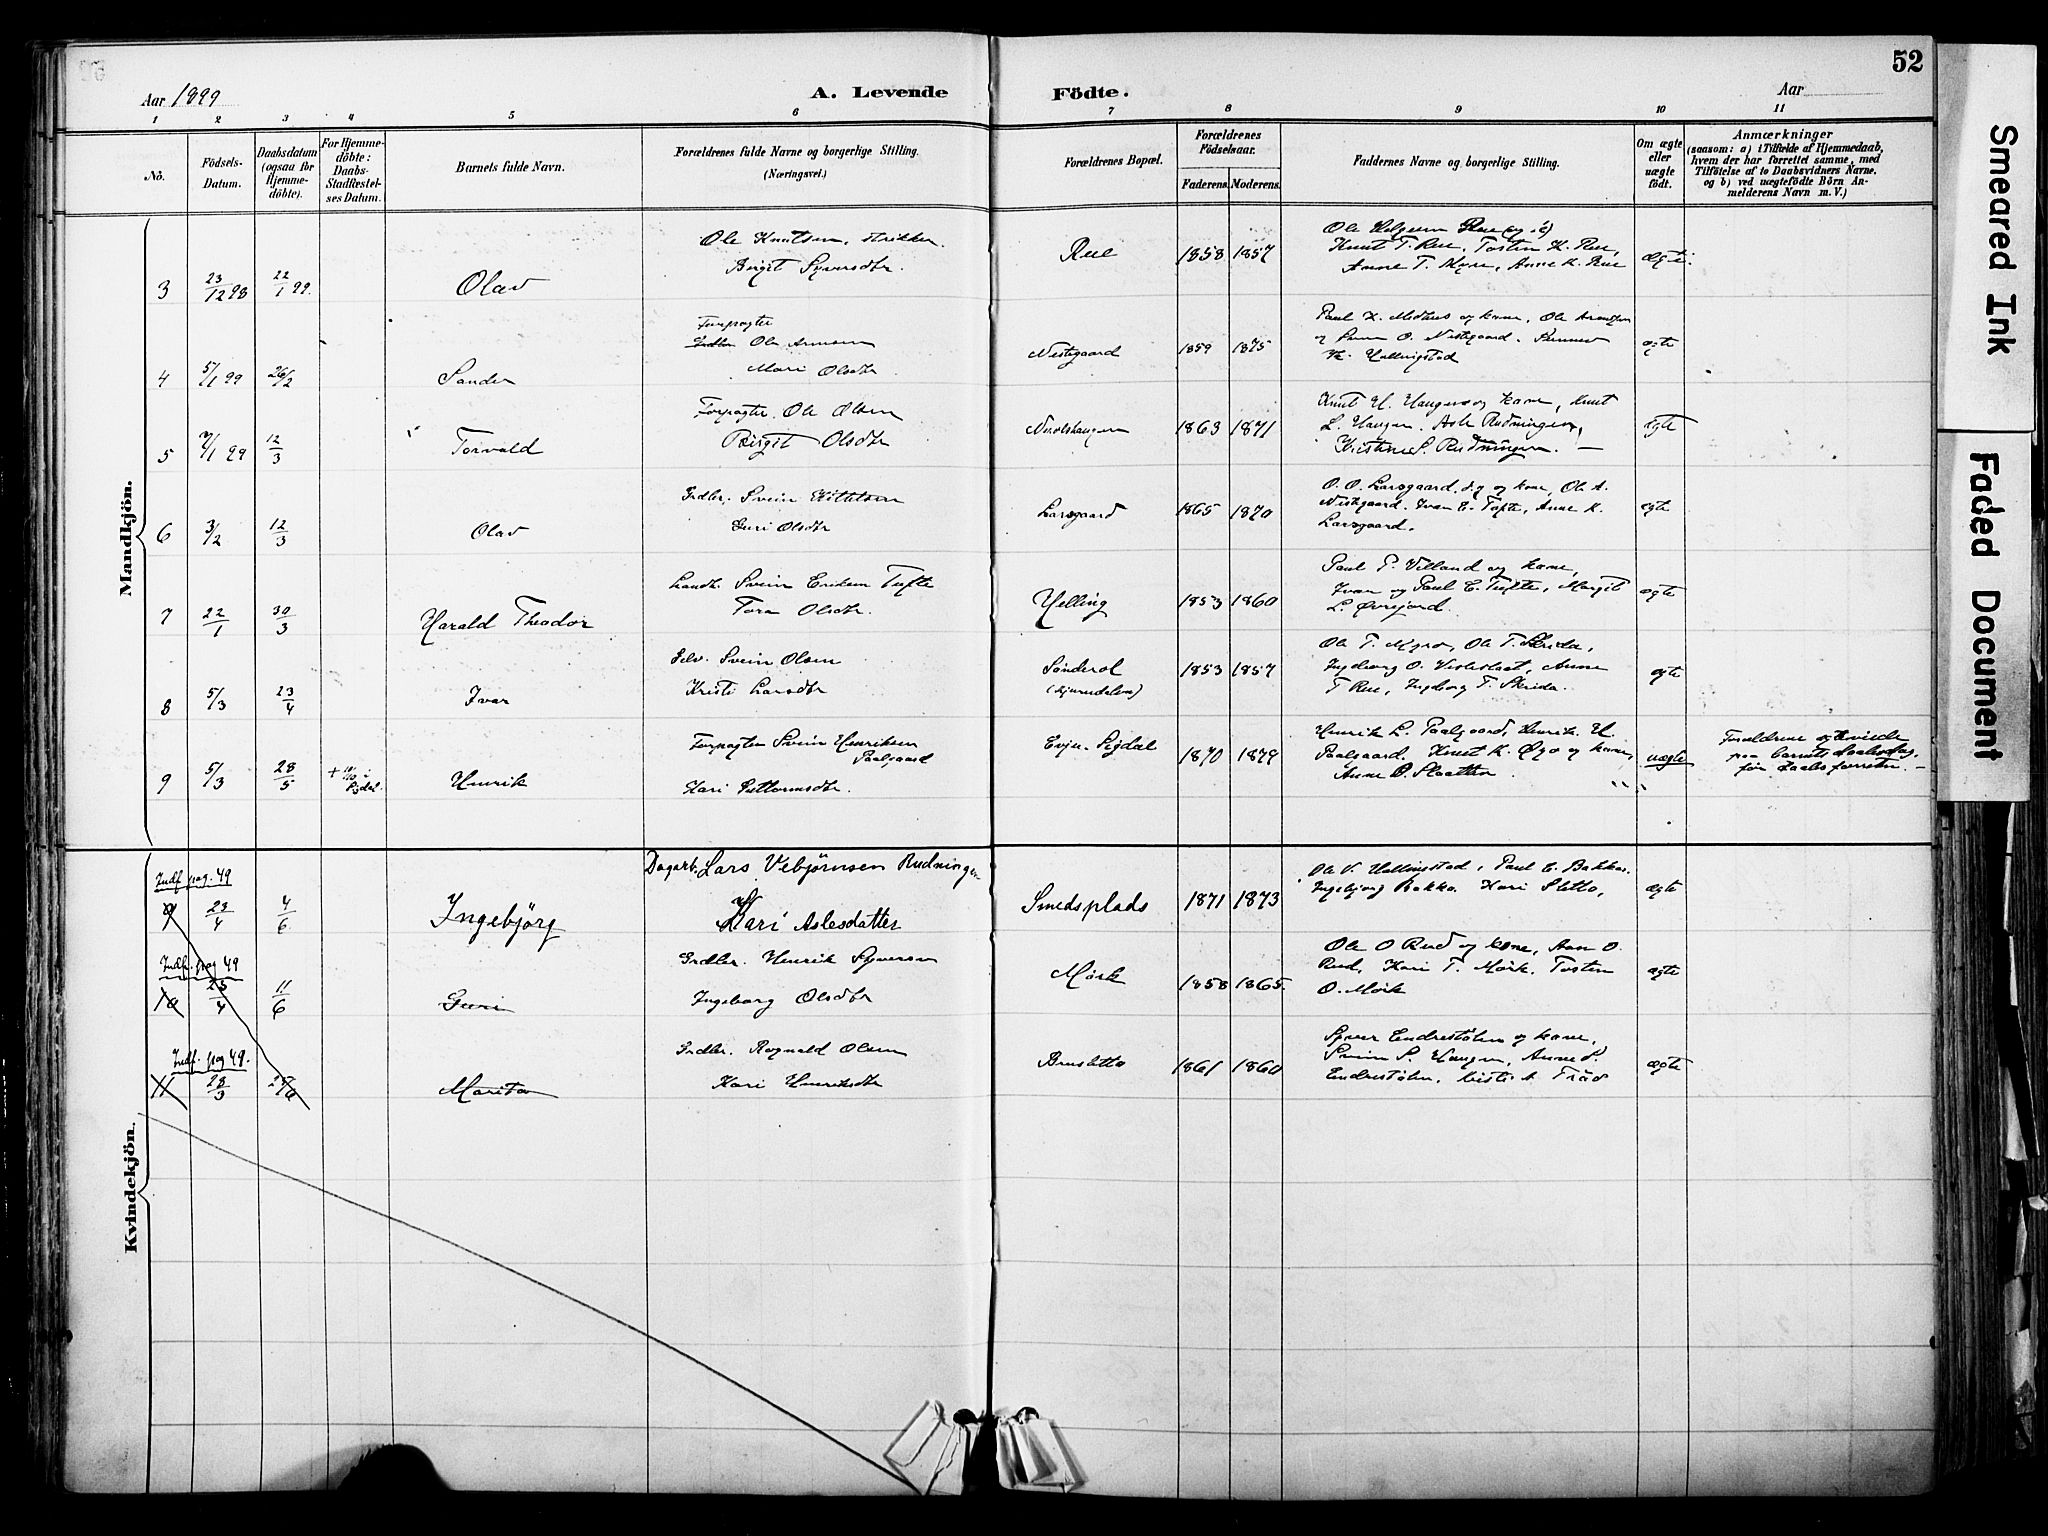 52
Aar 1899
A. Levende Födte.
Aar
1 2 3 4 5 6 7 8 9 10 11
No.
Födsels-
Datum.
Daabsdatum
(ogsaa for
Hjemme-
döbte).
For Hjemme-
döbte:
Daabs-
Stadfestel-
ses Datum.
Barnets fulde Navn.
Forældrenes fulde Navne og borgerlige Stilling.
(Næringsvei.)
Forældrenes Bopæl.
Forældrenes
Födselsaar.
Faderens. Moderens.
Faddernes Navne og borgerlige Stilling.
Om ægte
eller
uægte
födt.
Anmærkninger
(saasom: a) i Tilfælde af Hjemmedaab,
hvem der har forrettet samme, med
Tilföielse af to Daabsvidners Navne,
og b) ved uægtefödte Börn An-
melderens Navn m. V.)
Mandkjön.
3 23/12 98 22/1 99. Olav
Ole Knutsen, strikker
Birgit Syversdtr.
Rue 1858 1857
Ole Helgesen Rue
Knut T. Rue, Tosten K. Rue,
Anne T. Myre, Anne K. Rue
ægte
4 5/1 99 26/2 Sander
Forpagter
Grdbr. Ole Arnesen
Mari Olsdtr
Nestegaard 1859 1875
Paul K. Medhus og kone, Ole Arnesen
O. Nestegaard.
Hallingstad
ægte
5 7/1 99 12/3 Torvald
Forpagter Ole Olsen
Birgit Olsdtr
Nirolshaugen 1863 1871
Knut H. Haugen og kone, Knut
L. Haugen. Asle Rudningen,
Kristine S. Rudningen. —
ægte
6 3/2 12/3 Olav
Grdbr. Svein Kittelsen
Guri Olsdtr
Larsgaard 1865 1870
O. O. Larsgaard og kone, Ole A.
Nestegaard. Ivar E. Tufte, Anne K.
Larsgaard.
ægte
7 22/1 30/3 Harald Theodor
Landh. Svein Eriksen Tufte
Tora Olsdtr.
Helling 1853 1860
Paul P. Villand og kone,
Ivar og Paul E. Tufte, Margit
L. Øvrejord.
ægte
8 5/3 23/4 Ivar
Selv. Svein Olsen
Kristi Larsdtr
Sönderol
1853 1857
Ole T. Myro, Ole T. Skrida,
Ingeborg O. Anne
T Rue, Ingeborg T. Skrida.
ægte
9 5/3 28/5 + i Sigdal. Henrik
Forpagter Svein Henriksen
Paalsgaard
Kari Guttormsdtr.
Evju. Sigdal 1870 1879
Henrik L. Paalsgaard, Henrik H.
Paalsgaard. Knut K. Øyo og kone,
Anne O. Slaatten
uægte
Forældrene egteviede
paa barnets daabsdag,
før daabsforretn. —
Kvindekjön.
Indf. pag. 49
9 23/4 4/6 Ingebjörg
Dagarb. Lars Vebjørnsen Rudningen
Kari Aslesdatter
Smedsplads 1871 1873
Ole V. Hallingstad, Paul E. Bakko.
Ingebjørg Bakko. Kari Sletto,
ægte
Indf. pag 49
10 25/4 11/6 Guri
Grdbr. Henrik Syversen
Ingeborg Olsdtr
Mørk 1858 1865.
Ole O Rud og kone, O.
Rud, Kari T. Mørk. Tosten
O. Mørk
ægte
Indf. pag 49.
11 28/3 25/6 Marita
Grdbr. Ragnald Olsen
Kari Henriksdtr
Brusletto 1861 1860
Syver Endrestølen og kone,
Svein S. Haugen, Anne S.
Endrestølen, Træo
ægte
Smeared Ink
Faded Document